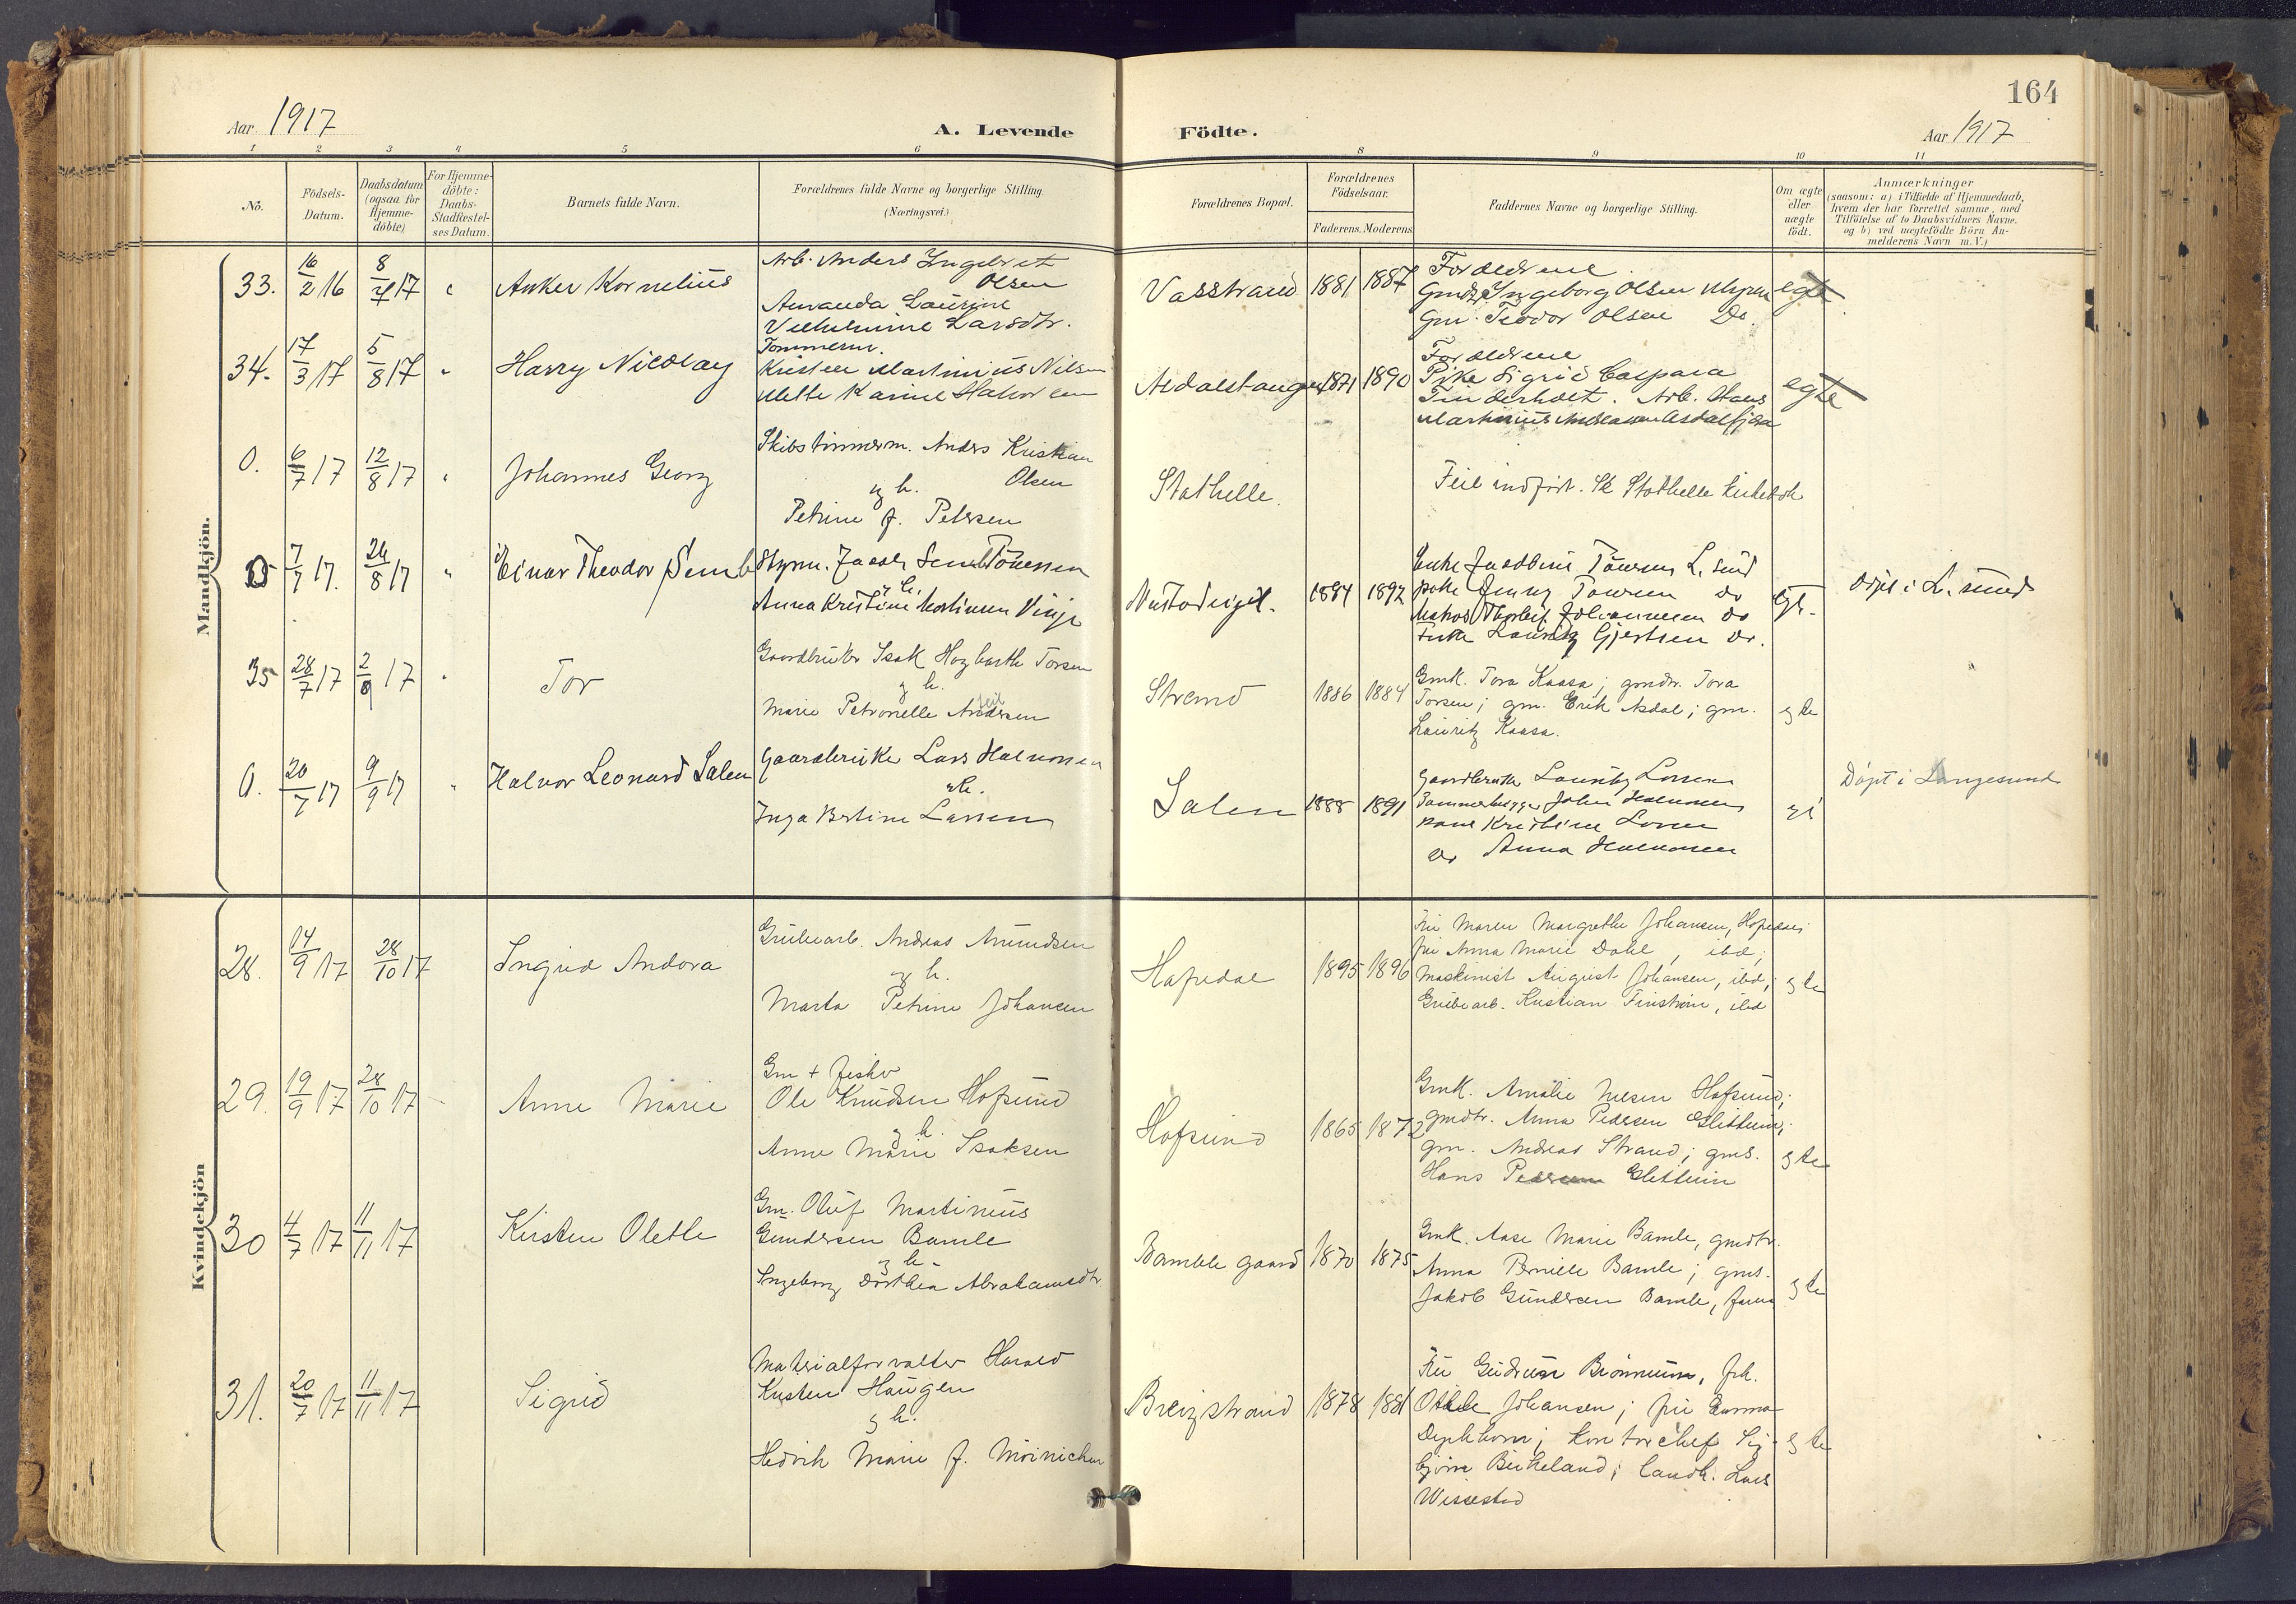 164
Aar 1917
A. Levende Födte.
Aar 1917
1 2 3 4 5 6 8 9 10 11
No.
Födsels-
Datum.
Daabsdatum
(ogsaa for
Hjemme-
döbte)
For Hjemme-
döbte:
Daabs-
Stadfæstel-
ses Datum.
Barnets fulde Navn.
Forældrenes fulde Navne og borgerlige Stilling.
(Næringsvei.)
Forældrenes Bopæl.
Forældrenes
Födselsaar.
Faderens. Moderens
Faddernes Navne og borgerlige Stilling.
Om ægte
eller
uægte
födt.
Anmærkninger
(saasom: a) i Tilfælde af Hjemmedaab,
hvem der har forrettet samme, med
Tilföielse af to Daabsvidners Navne.
og b) ved uægtefödte Börn An-
melderens Navn m. V.)
Mandkjön.
33. 16/2 16 8/4 17 " Anker Kornelius
Arb. Anders Ingebret
Olsen
Amanda Laurine
Vilhelmine Larsdtr.
Vasstrand 1881 1887
Forældrene
Gmdtr. Ingeborg Olsen
Gm. Teodor Olsen Do.
egte
34. 17/3 17 5/8 17 " Harry Nicolay
Tømmerm.
Kristen Martinius Nilsen
Mette Karine Halvorsen
Asdalstangen 1871 1890
Forældrene
Pike Sigrid Caspara
Tinderholt. Arb. Hans
Martinius Andreassen Asdalfjæra
egte
0. 6/7 17 12/8 17 " Johannes Georg
Skibstømmerm. Anders Kristian
Olsen
og h.
Petrine f. Petersen
Stathelle.
Feil indført. Se Stathelle kirkebok
0 7/7 17. 26/8 17 " Einar Theodor Semb
Styrm. Jacob Semb Tönesen
og h.
Anna Kristine Martinsen Vinje
1884 1892
Enke Jacobine Tönesen L. sund
pike Jenny Tönesen do
Matros Thorleif Johannesen do
Lauritz Gjertsen do.
Egt.
Döpt i L. sund
35 28/7 17 2/9 17 " Tor
Gaardbruker Isak Hagbarth Torsen
og h.
Marie Petronelle Andersen
feil
Strand 1886 1884
Gmk. Tora Kaasa; gmdtr. Tora
Torsen; gm. Erik Asdal; gm.
Lauritz Kaasa.
egte
0. 20/7 17 9/9 17 " Halvor Leonard Salen
Gaardbruker Lars Halvorsen
og h.
Inga Bertine Larsen
Salen 1888 1891
Gaardbruker Lauritz Larsen
Tømmerhugger Johan Halvorsen
kone Kristine Larsen
do Anna Halvorsen
Döpt i Langesund
Kvindekjön
28. 14/9 17 28/10 17 Ingrid Andora
Grubearb. Andreas Amundsen
og h.
Marta Petrine Johansen
Hafsdal 1895 1896
Fru Maren Margrethe Johansen, Hafsdal;
fru Anna Marie Dahl, ibd;
Maskinist August Johansen, ibd;
Grubearb. Kristian Finstrøm, ibd
egte
29. 19/9 17 28/10 17 Anne Marie
Gm + fisker
Ole Knudsen Hafsund
og h.
Anne Marie Isaksen
Hafsund 1865 1872
Gmk. Amalie Nilsen Hafsund;
gmdtr. Anna Pedersen Glittum;
gm. Andreas Strand; gms.
Hans Pedersen Glittum
egte
30 4/7 17 11/11 17 Kirsten Oletle
Gm. Oluf Martinius
Gundersen Bamle
og h.
Ingeborg Dorthea Abrahamsdtr.
Bamble gaard 1870 1875
Gmk. Aase Marie Bamle, gmdtr.
Anna Pernille Bamle; gms.
Jakob Gundersen Bamle,
egte
31. 20/7 17 11/11 17 Sigrid
Materialforvalter Harald
Kristen Haugen
og h.
Hedvik Marie f. Møinichen
Breigstrand 1878 1881
Fru Gudrun Brønnum, frk.
Otilde Johansen; fru Emma
Dyrkhorn; kontorchef Sig-
bjørn Birkeland; landh. Lars
Wissestad
egte